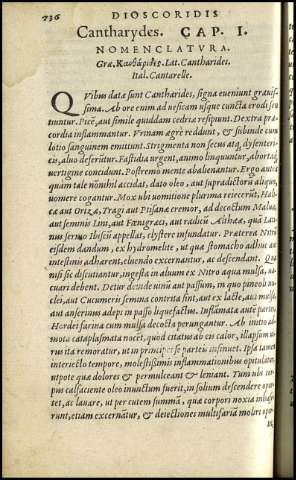 736
DIOSCORIDIS
Cantharydes. CAP. I.
NOMENCLATVRA.
Græ. Κανθάριδες. Lat. Cantharides.
Ital. Cantarelle.
QVibus datæ sunt Cantharides, signa eveniunt gravis-
sima. Ab ore enim ad vesicam usque cuncta erodi sen
tiuntur. Picē, aut simile quiddam cedriæ resipiunt. Dextra præ
cordia inflammantur. Vrinam ægrè reddunt, & subinde cum
lotio sanguinem emittunt. Strigmenta non secus atq; dysenteri-
cis, alvo deferūtur. Fastidia urgent, animo linquuntur, abortā
vertigine concidunt. Postremò mente abalienantur. Ergo antea
quàm tale nōnihil accidat, dato oleo, aut supradictorū aliquo,
vomere cogantur. Mox ubi vomitione plurima reiecerūt, Hali-
cæ aut Orizæ, Tragi aut Ptisanæ cremor, ad decoctum Malvæ,
aut seminis Lini, aut Fœnigræci, aut radicū Althææ, quā La-
tinus sermo Ibiscū appellat, clystere infundatur. Præterea Nitrū
eisdem dandum, ex hydromelite, ut quæ stomacho adhuc aut
intestinis adhærent, eluendo excernantur, ac descendant. Quæ
nisi sic discutiantur, ingesta in alvum ex Nitro aqua mulsa, e-
vocari debent. Detur deinde vinū aut passum, in quo pineoli nu-
clei, aut Cucumeris semina contrita sint, aut ex lacte, aut mulsa,
aut anserinus adeps in passo liquefactus. Inflāmatæ autē partes,
Hordei farina cum mulsa decocta perungantur. Ab initio ad-
mota cataplasmata nocēt, quòd citatus ab eis calor, illapsum ui-
rus ita remoratur, ut in principes se partes insinuet. Ipsa tamen
interiecto tempore, molestissimis inflammationibus opitulātur
utpote quæ dolores & permulceant & leniant. Tum uerò tem-
pus calfaciente oleo inunctum fuerit, in solium descendere opor-
tet, ac lavare, ut per cutem summā, quæ corpori noxia inhæse-
runt, etiam excernātur, & deiectiones multifariā moliri opor-